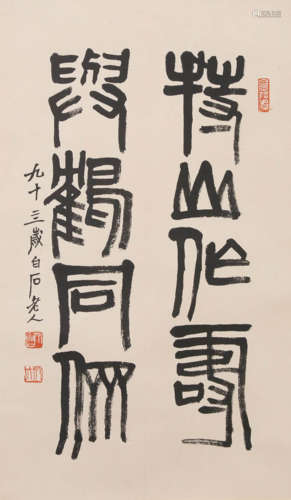 持山作壽
與鶴同倗
九十三歲白石老人